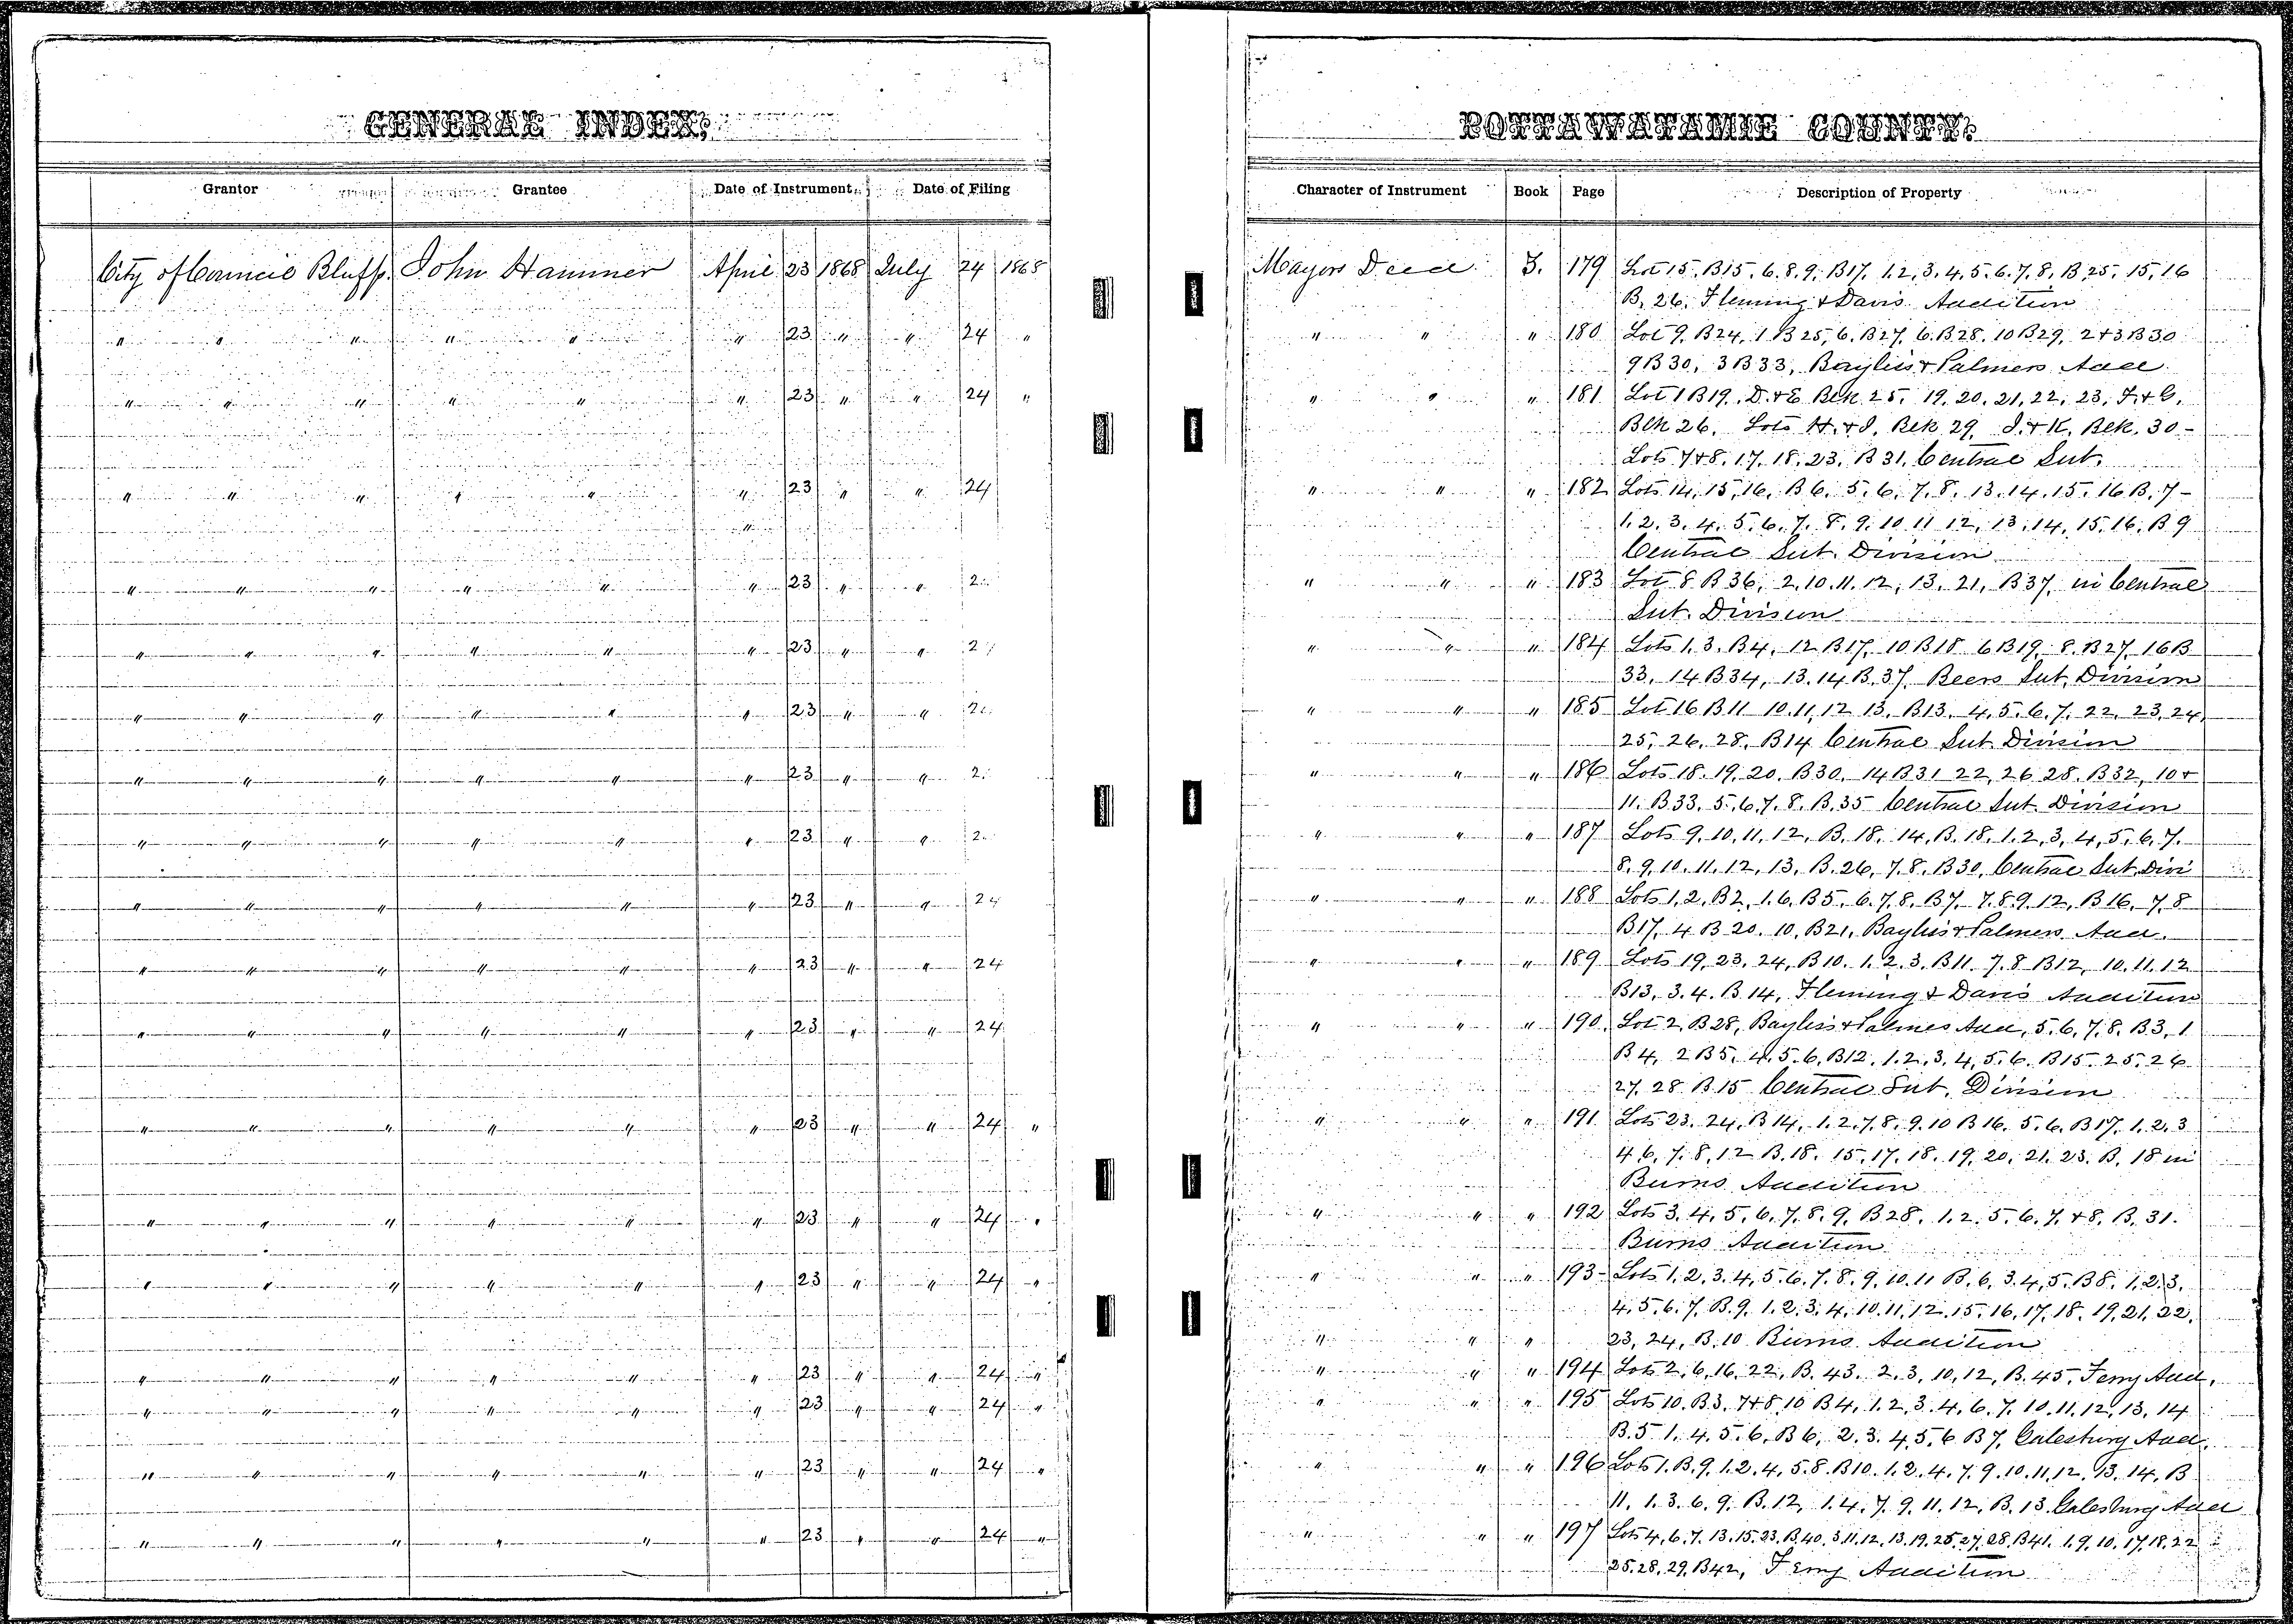 GENERAL INDEX,
Grantor Grantee Date of Instrument. Date of Filing
City of Council Bluffs. John Hammer April 23 1868 July 24 1868
" " " " " " 23 " " 24 "
" " " " " " 23 " " 24 "
" " " " " " 23 " " 24
"
" " " " " " 23 " " 2
" " " " " " 23 " " 2
" " " " " " 23 " " 2
" " " " " " 23 " " 2
" " " " " " 23 " " 2
" " " " " " 23 " " 24
" " " " " " 23 " " 24
" " " " " " 23 " " 24
" " " " " " 23 " " 24 "
" " " " " " 23 " " 24 "
" " " " " " 23 " " 24 "
" " " " " " 23 " " 24 "
" " " " " " 23 " " 24 "
" " " " " " 23 " " 24 "
" " " " " " 23 " " 24 "
POTTAWATAMIE COUNTY.
Character of Instrument Book Page Description of Property
Mayors Deed 179 Lot 15, B15, 6, 8, 9, B17, 1, 2, 3, 4, 5, 6, 7, 8, B, 25, 15, 16
B, 26, Fleming & Davis Addition
" " " 180 Lot 9, B24, 1 B25, 6, B27, 6, B28, 10 B29, 2+3 B30
9 B30, 3 B33, Bayliss & Palmers Add
" " " 181 Lot 1 B19, D. & E Blk 25, 19, 20, 21, 22, 23, F. & G,
Blk 26, Lots H. & I, Blk 29, J. & K, Blk. 30 -
Lots 7+8, 17, 18, 23, B31, Central Sub.
" " " 182 Lots 14, 15, 16, B6, 5, 6, 7, 8, 13, 14, 15, 16 B, 7 -
1, 2, 3, 4, 5, 6, 7, 8, 9, 10, 11 12, 13, 14, 15, 16, B9
Central Sub. Division
" " " 183 Lot 8 B36, 2, 10, 11, 12, 13, 21, B37, in Central
Sub. Division
" " " 184 Lots 1, 3, B4, 12 B17, 10 B18 6 B19, 8, B27, 16 B
33, 14 B34, 13, 14 B, 37, Beers Sub, Division
" " " 185 Lot 16 B11 10, 11, 12 13, B13, 4, 5, 6, 7, 22, 23, 24,
25, 26, 28, B14 Central Sub Division
" " " 186 Lots 18, 19, 20, B30, 14 B31 22, 26 28, B32, 10 +
11, B33, 5, 6, 7, 8, B, 35 Central Sub. Division
" " " 187 Lots 9, 10, 11, 12, B, 18, 14, B, 18, 1, 2, 3, 4, 5, 6, 7,
8, 9, 10, 11, 12, 13, B, 26, 7, 8, B30, Central Sub, Divi
" " " 188 Lots 1, 2, B2, 1, 6, B5, 6, 7, 8, B7, 7, 8, 9, 12, B16, 7, 8
B17, 4 B 20, 10, B21, Bayliss & Palmers Add.
" " " 189 Lots 19, 23, 24, B10, 1, 2, 3, B11, 7, 8 B12, 10, 11, 12
B13, 3, 4, B, 14, Fleming & Davis Addition
" " " 190 Lot 2, B28, Bayliss & Palmers Add, 5, 6, 7, 8, B3, 1
B4, 2 B5, 4, 5, 6, B12, 1, 2, 3, 4, 5, 6, B15 25, 26
27, 28 B.15 Central Sub, Division
" " " 191 Lots 23, 24, B14, 1, 2, 7, 8, 9, 10 B16, 5, 6, B17, 1, 2, 3
4, 6, 7, 8, 12 B, 18, 15, 17, 18, 19, 20, 21, 23, B, 18 in
Burns Addition
" " " 192 Lots 3, 4, 5, 6, 7, 8, 9, B28, 1, 2, 5, 6, 7, +8, B, 31.
Burns Addition
" " " 193 - Lots 1, 2, 3, 4, 5, 6, 7, 8, 9, 10, 11 B, 6, 3, 4, 5, B8, 1, 2, 3,
4, 5, 6, 7, B, 9, 1, 2, 3, 4, 10, 11, 12, 15, 16, 17, 18, 19, 21, 22,
" " " 23, 24, B, 10 Burns Addition
" " " 194 Lots 2, 6, 16, 22, B, 43, 2, 3, 10, 12, B, 45, Ferry Add,
" " " 195 Lots 10, B3, 7+8, 10 B4, 1, 2, 3, 4, 6, 7, 10, 11, 12, 13, 14
B, 5 1, 4, 5, 6, B6, 2, 3, 4, 5, 6 B7, Galesburg Add.
" " " 196 Lots 1, B, 9, 1, 2, 4, 5, 8, B10, 1, 2, 4, 7, 9, 10, 11, 12, 13, 14, B
11, 1, 3, 6, 9, B, 12, 1, 4, 7, 9, 11, 12, B, 13 Galesburg Add
" " " 197 Lots 4, 6, 7, 13, 15, 23, B, 40, 3, 11, 12, 13, 19, 25, 27, 28, B41, 1, 9, 10, 17, 18, 22
25, 28, 29, B42, Ferry Addition